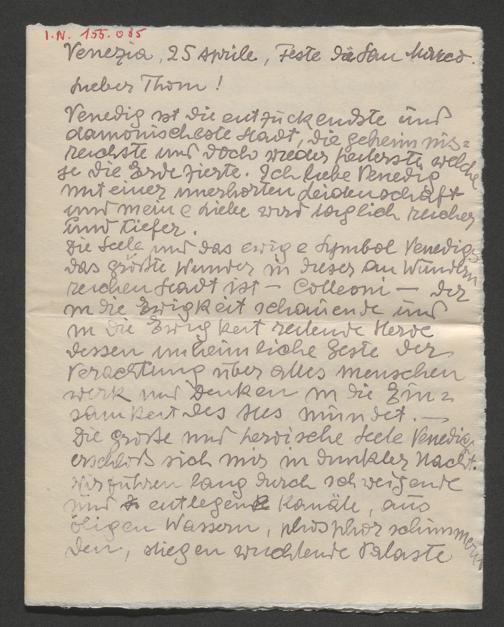 I.N. 155.085
Venezia, 25 Aprile, Feste di San Marco.
Lieber Thom!
Venedig ist die entzückendste und
dämonischeste Stadt, die geheimnis=
reichste und doch wieder heiterste, welche
je die Erde zierte. Ich liebe Venedig
mit einer unerhörten Leidenschaft
und meine Liebe wird täglich reicher
und tiefer.
Die Seele und das ewige Symbol Venedigs
das größte Wunder in dieser an Wundern
reichen Stadt ist – Colleoni – der
in die Ewigkeit schauende und
in die Ewigkeit reitende Heros
dessen unheimliche Geste der
Verachtung über alles Menschen
werk und Denken in die Ein=
samkeit des Alls mündet. –
Die große und heroische Seele Venedigs
erschloß sich mir in dunkler Nacht.
Wir fuhren lang durch schweigende
und entlegene Kanäle, aus
öligen Wassern, phosphor schimmern
den, stiegen wuchtende Paläste